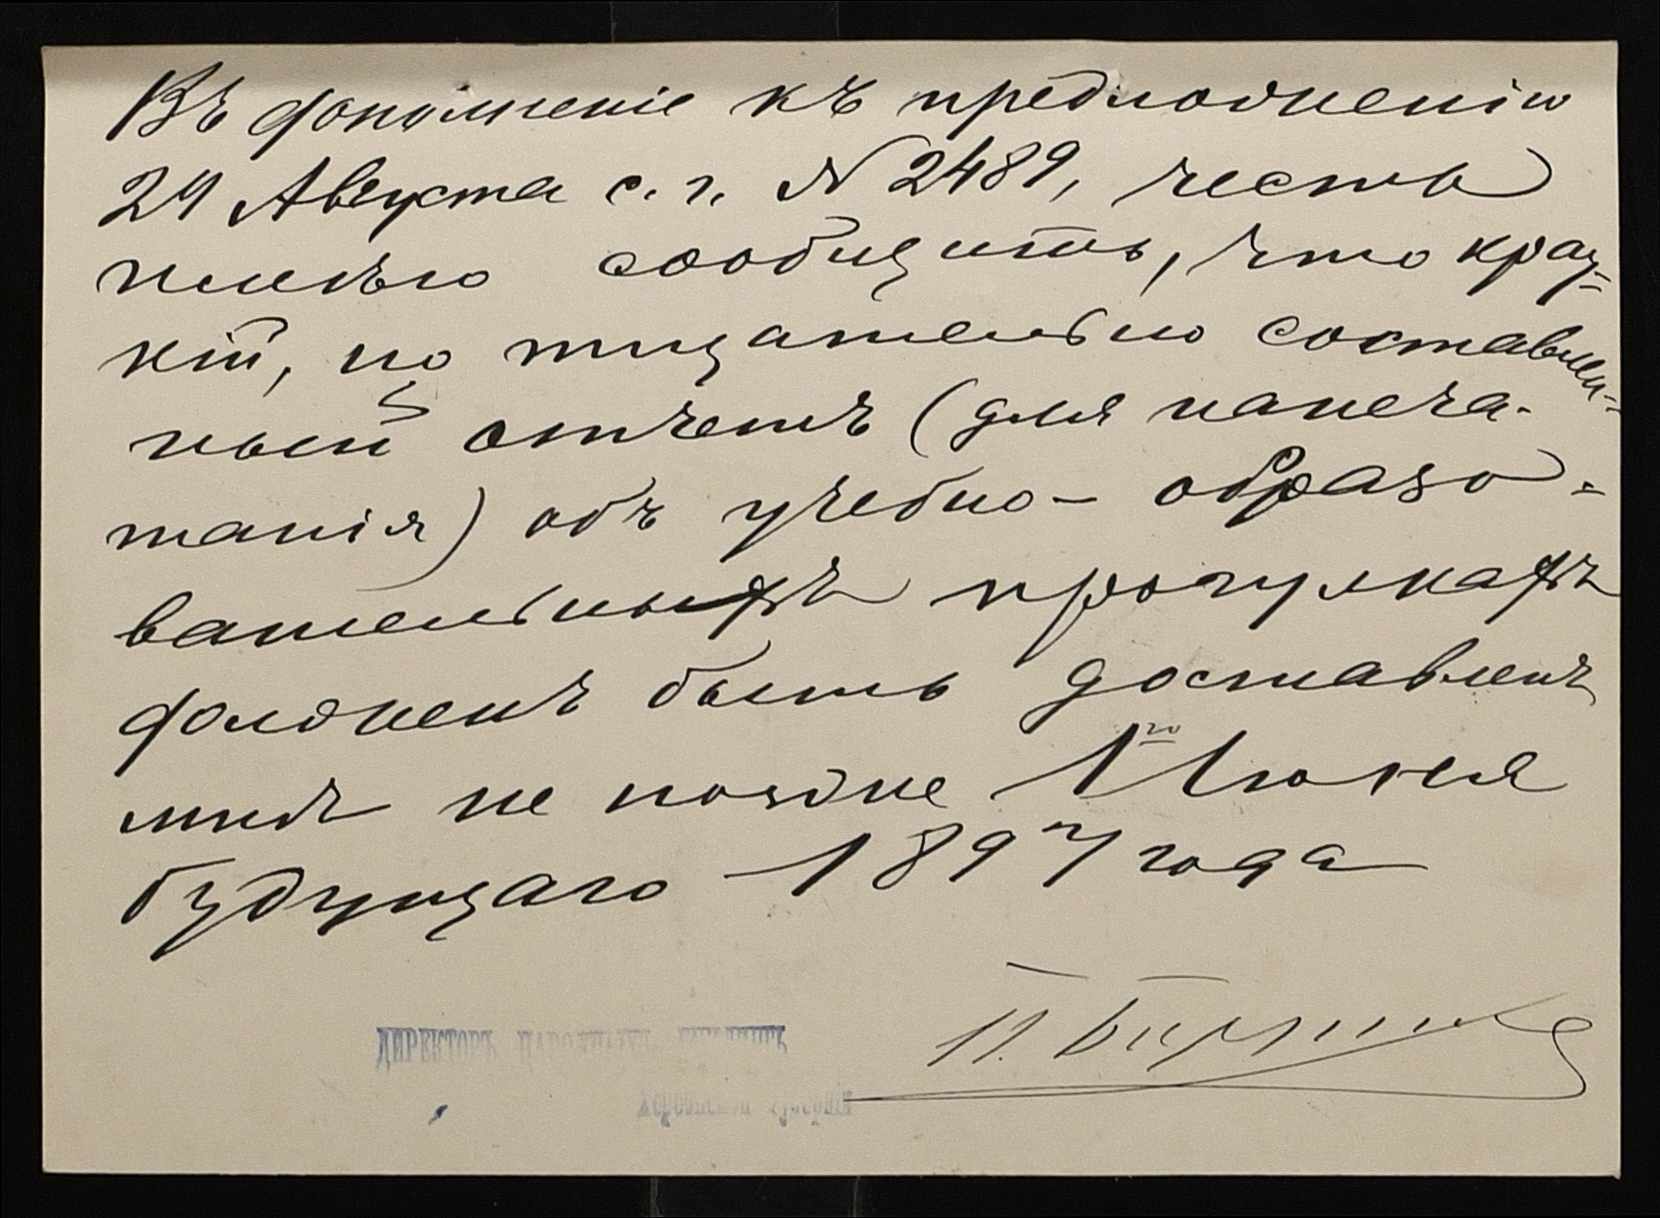 Въ дополненіе къ предложенію
24 Августа с. г. N 2489, честь
имѣю сообщить, что крат-
кій, но тщательно составлен-
ный отчетъ (для напеча-
танія) объ учебно- образо-
вательныхъ прогулкахъ
долженъ быть доставленъ
мнѣ не позднѣе 1го Іюня
будущаго 1897 года
П.
ДИРЕКТОРЪ НАРОДНЫХЪ УЧИЛИЩЪ
Херсонской губерніи